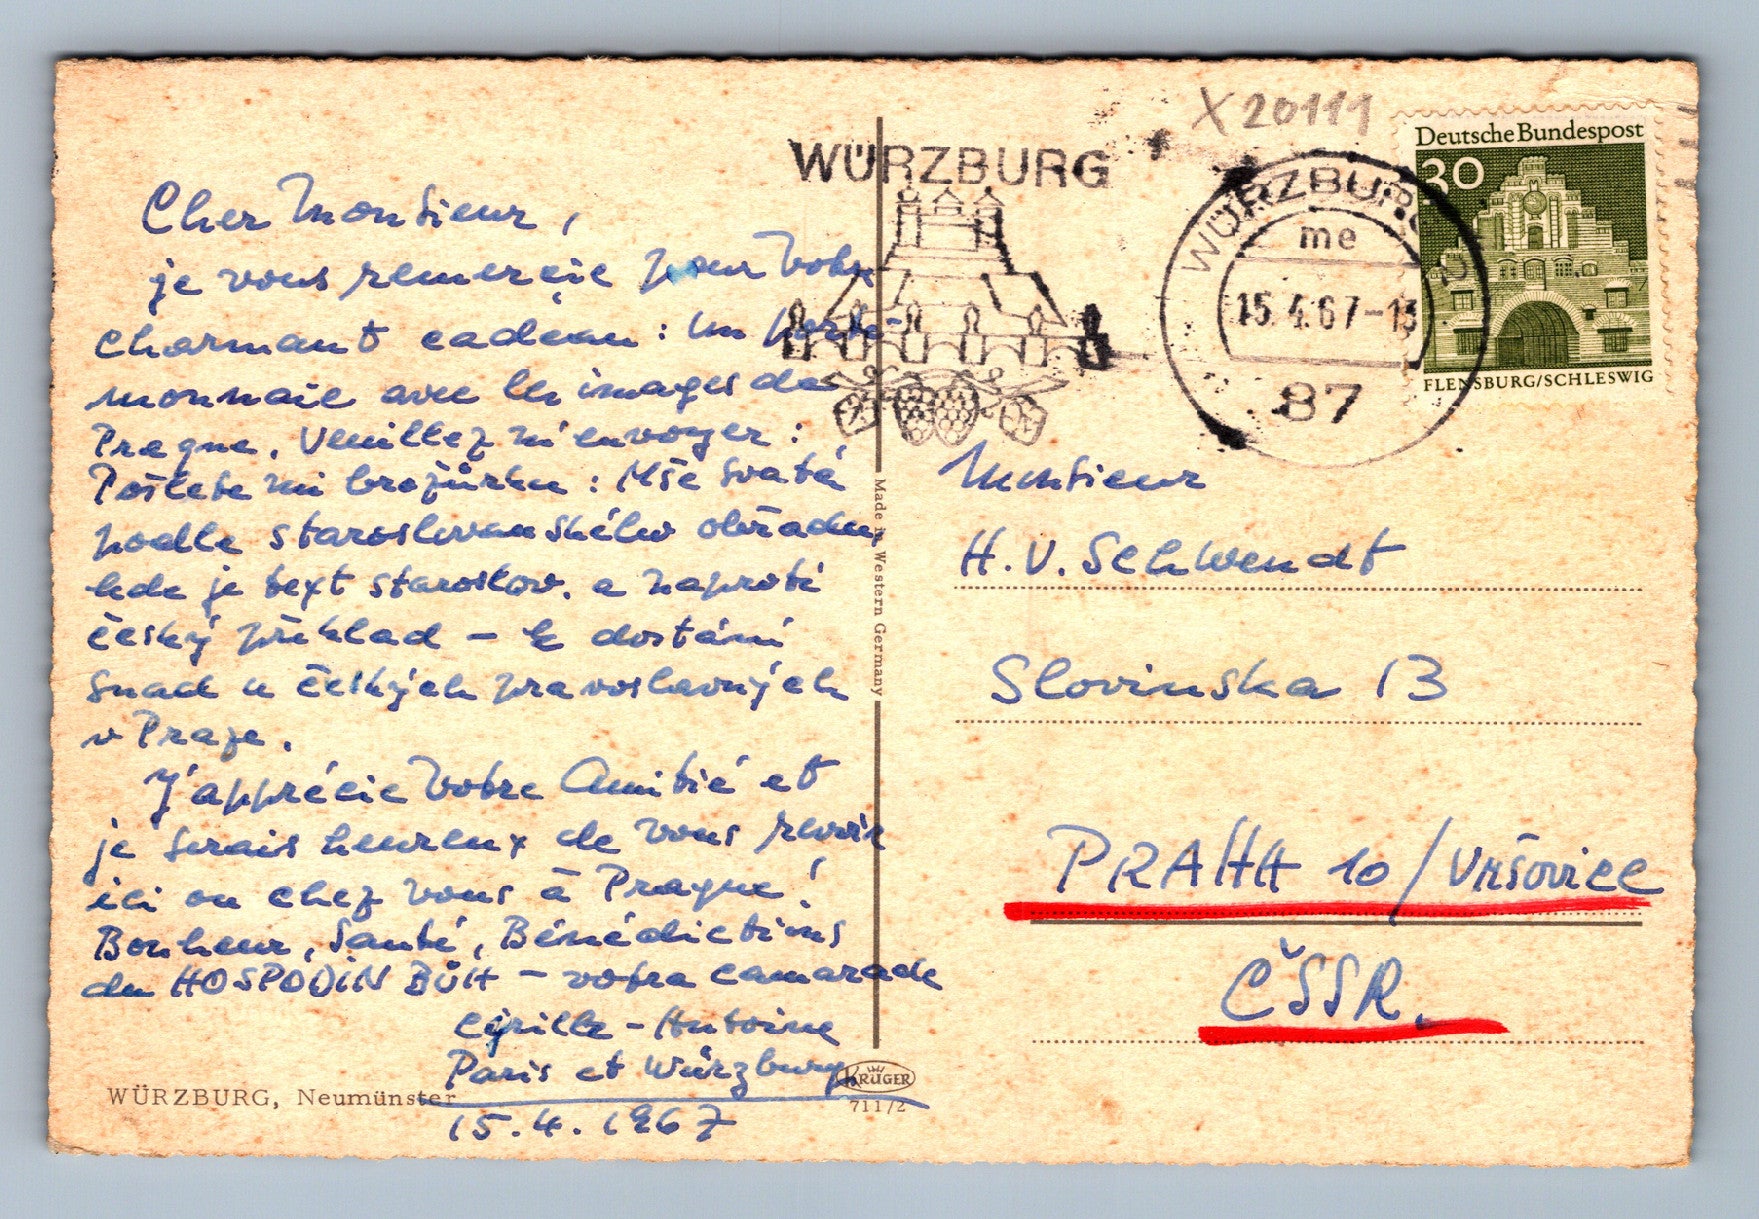 X 20111
WÜRZBURG
WÜRZBURG 2
me
15.4.67-13
87
Deutsche Bundespost
30
FLENSBURG/SCHLESWIG
Cher Monsieur,
je vous remercie pour Votre
charmant cadeau : un porte-
monnaie avec les images de
Prague. Veuillez m'envoyer :
Pošlete mi brožůrku : Mše Svatá
podle staroslovanského obřadu,
kde je text staroslov. a naproti
český překlad – k dostání
snad u českých pravoslavných
v Praze.
J'apprécie Votre Amitié et
je serais heureux de vous revoir
ici ou chez vous à Prague !
Bonheur, Santé, Bénédictions
du HOSPODIN BŮH – votre camarade
Cyrille-Antoine
Paris et Würzburg
15.4.1967
WÜRZBURG, Neumünster
Made in Western Germany
KRÜGER
711/2
Monsieur
H.V. Schwendt
Slovinska 13
PRAHA 10/Vršovice
ČSSR.